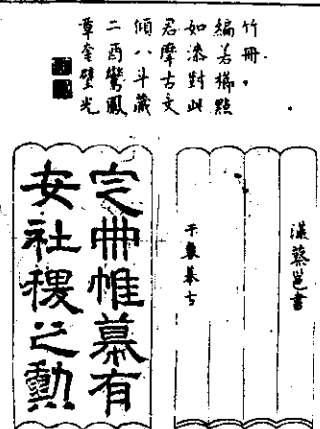 竹冊。
編若橫點
如漆對此
君摩古文
傾八斗藏
二酉鸞鳳
章奎壁光
漢蔡邕書
摹古
定冊帷幕有
安社稷之勳